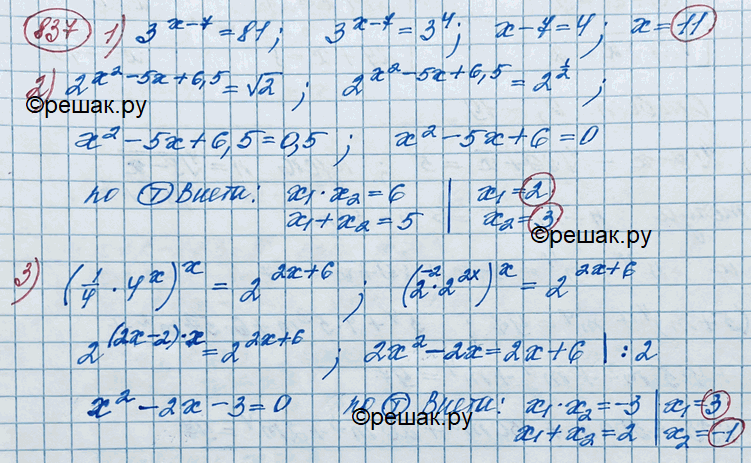 837 1) 3^(x-7) = 81; 3^(x-7) = 3^4; x-7=4; x=11
2) 2^(x²-5x+6,5) = √2; 2^(x²-5x+6,5) = 2^(1/2);
©решак.ру
x²-5x+6,5=0,5; x²-5x+6=0
по Т Виета: x₁·x₂=6 | x₁=2
x₁+x₂=5 | x₂=3
©решак.ру
3) (1/4·4^x)^x = 2^(2x+6); (2^(-2)·2^(2x))^x = 2^(2x+6)
2^((2x-2)·x) = 2^(2x+6); 2x²-2x=2x+6 |:2
x²-2x-3=0 по Т Виета: x₁·x₂=-3 | x₁=3
©решак.ру
x₁+x₂=2 | x₂=-1